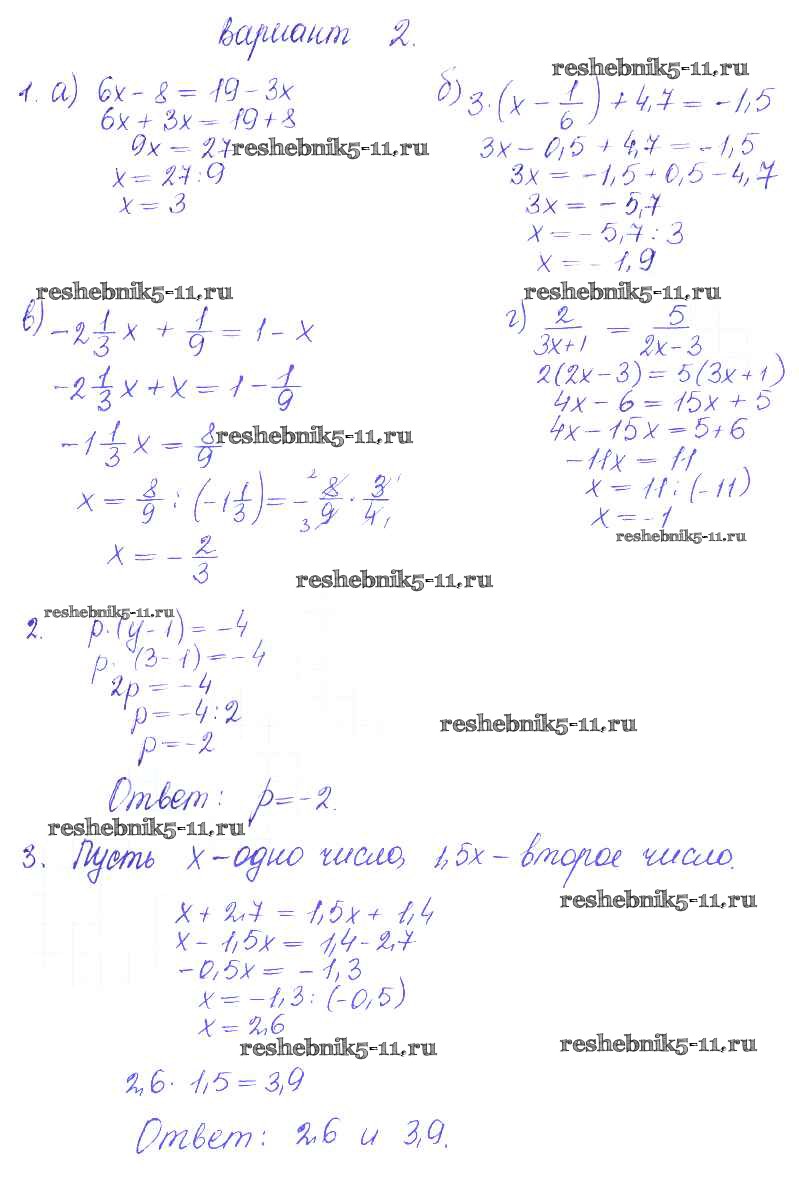 вариант 2.
reshebnik5-11.ru
1. а) 6x - 8 = 19 - 3x
6x + 3x = 19 + 8
9x = 27
reshebnik5-11.ru
x = 27 : 9
x = 3
б) 3 · (x - 1/6) + 4,7 = -1,5
3x - 0,5 + 4,7 = -1,5
3x = -1,5 + 0,5 - 4,7
3x = -5,7
x = -5,7 : 3
x = -1,9
reshebnik5-11.ru
в) -2 1/3 x + 1/9 = 1 - x
-2 1/3 x + x = 1 - 1/9
-1 1/3 x = 8/9
reshebnik5-11.ru
x = 8/9 : (-1 1/3) = - 8/9 · 3/4
x = - 2/3
reshebnik5-11.ru
reshebnik5-11.ru
г) 2/(3x+1) = 5/(2x-3)
2(2x-3) = 5(3x+1)
4x - 6 = 15x + 5
4x - 15x = 5 + 6
-11x = 11
x = 11 : (-11)
x = -1
reshebnik5-11.ru
reshebnik5-11.ru
2. p · (y - 1) = -4
p · (3 - 1) = -4
2p = -4
p = -4 : 2
p = -2
reshebnik5-11.ru
Ответ: p = -2.
reshebnik5-11.ru
3. Пусть x - одно число, 1,5x - второе число.
reshebnik5-11.ru
x + 2,7 = 1,5x + 1,4
x - 1,5x = 1,4 - 2,7
-0,5x = -1,3
x = -1,3 : (-0,5)
x = 2,6
reshebnik5-11.ru
reshebnik5-11.ru
2,6 · 1,5 = 3,9
Ответ: 2,6 и 3,9.